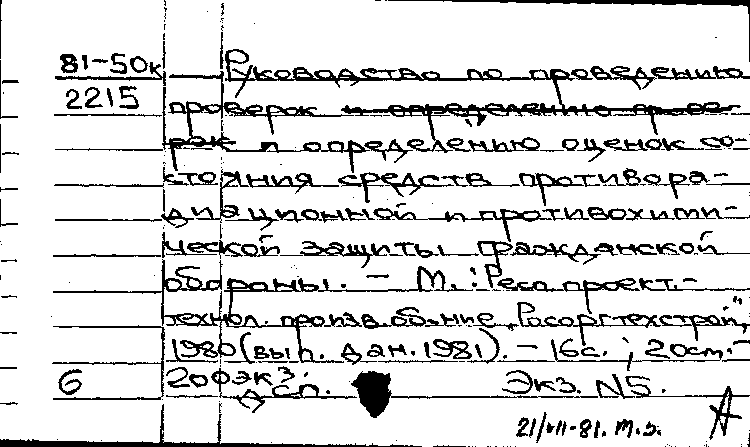 81-50к Руководство по проведению
2215 проверок и определению прове-
рок и определению оценок со-
стояния средств противора-
диационной и противохими-
ческой защиты гражданской
обороны. – М.: Респ. проект.-
технол. произв. об-ние „Росоргтехстрой",
1980 (вып. дан. 1981). – 16с.; 20см. –
6 200экз. сп. Экз. N5.
21/VII-81. А